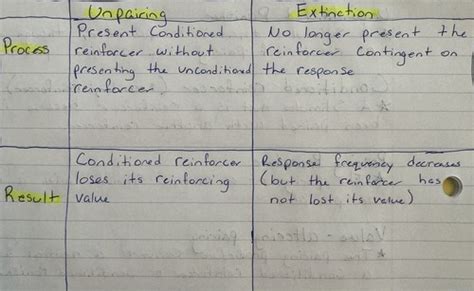 Unpairing
Extinction
Process
Present Conditioned
reinforcer without
presenting the unconditioned
reinforcer
No longer present the
reinforcer contingent on
the response
Result
Conditioned reinforcer
loses its reinforcing
value
Response frequency decreases
(but the reinforcer has
not lost its value)